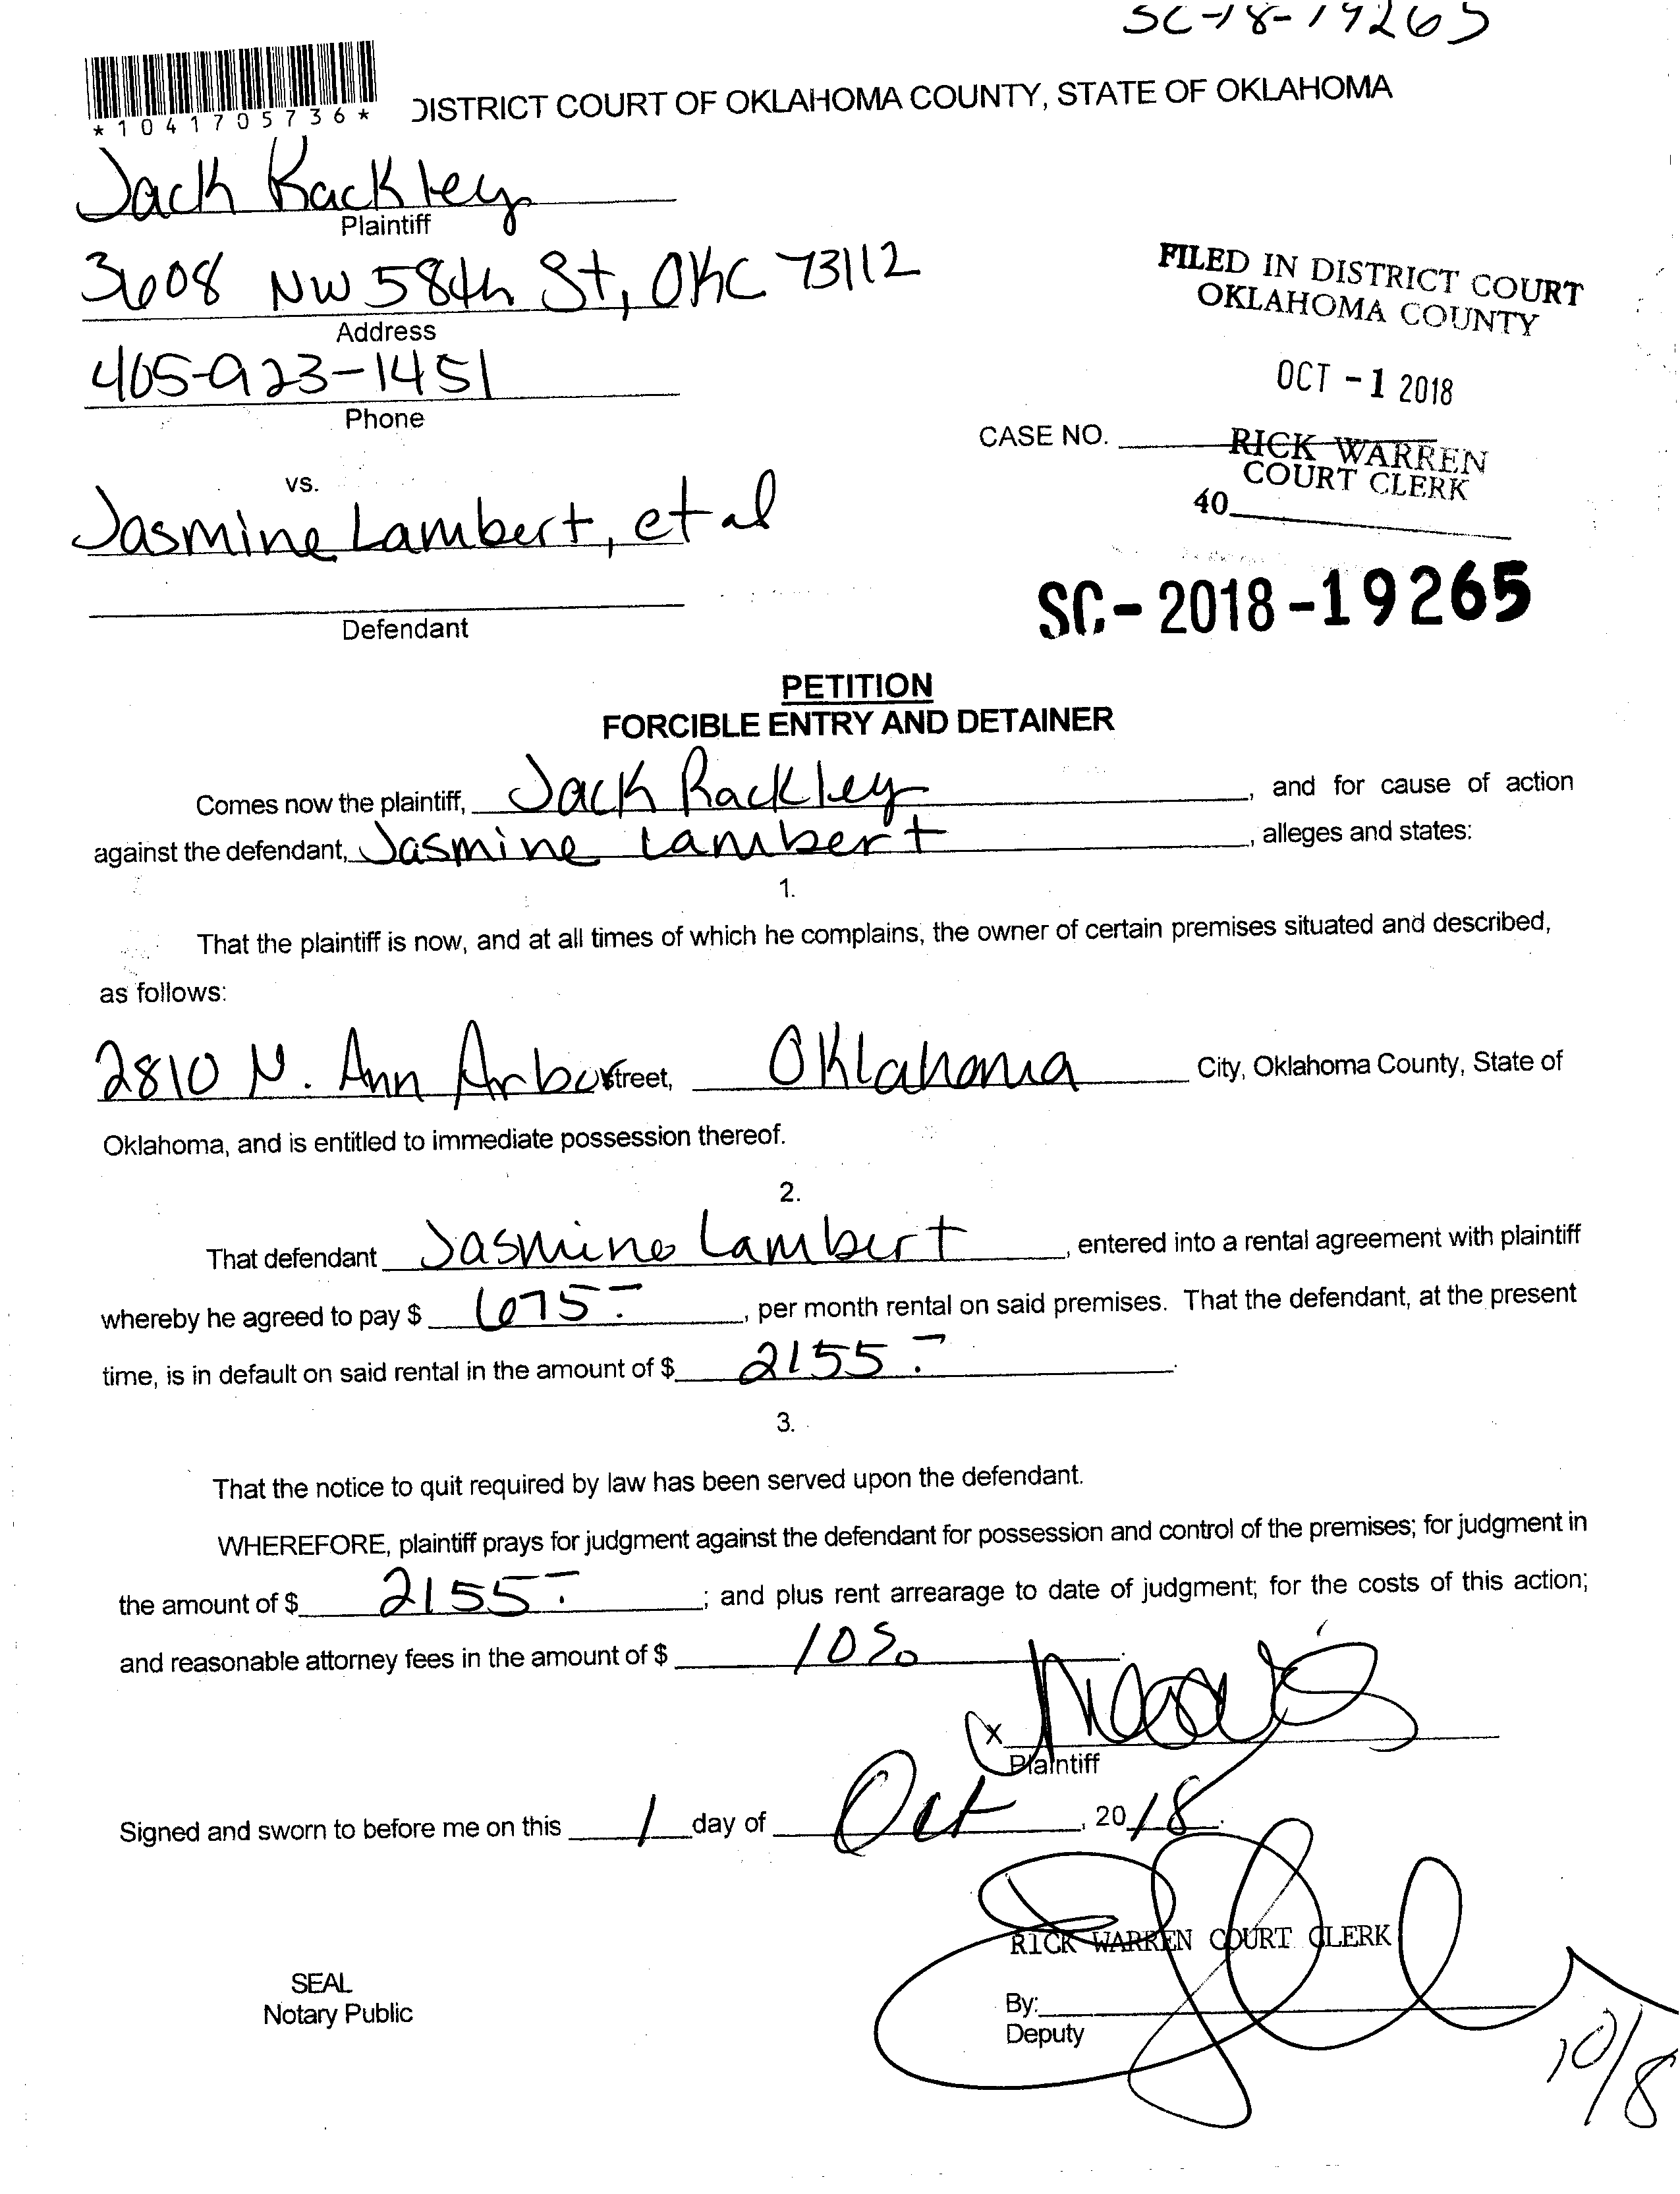 SC-18-19265
*1041705736*
DISTRICT COURT OF OKLAHOMA COUNTY, STATE OF OKLAHOMA
Jack Rackley
Plaintiff
3608 NW 58th St, OKC 73112
Address
405-923-1451
Phone
FILED IN DISTRICT COURT
OKLAHOMA COUNTY
OCT -1 2018
RICK WARREN
COURT CLERK
40
CASE NO.
vs.
Jasmine Lambert, et al
Defendant
SC-2018-19265
PETITION
FORCIBLE ENTRY AND DETAINER
Comes now the plaintiff, Jack Rackley, and for cause of action
against the defendant, Jasmine Lambert, alleges and states:
1.
That the plaintiff is now, and at all times of which he complains, the owner of certain premises situated and described,
as follows:
2810 N. Ann Arbor Street, Oklahoma City, Oklahoma County, State of
Oklahoma, and is entitled to immediate possession thereof.
2.
That defendant Jasmine Lambert, entered into a rental agreement with plaintiff
whereby he agreed to pay $ 675.-, per month rental on said premises. That the defendant, at the present
time, is in default on said rental in the amount of $ 2155.-.
3.
That the notice to quit required by law has been served upon the defendant.
WHEREFORE, plaintiff prays for judgment against the defendant for possession and control of the premises; for judgment in
the amount of $ 2155.-; and plus rent arrearage to date of judgment; for the costs of this action;
and reasonable attorney fees in the amount of $ 10%.
X
Plaintiff
Signed and sworn to before me on this 1 day of Oct, 2018.
RICK WARREN COURT CLERK
SEAL
Notary Public
By:
Deputy
10/8